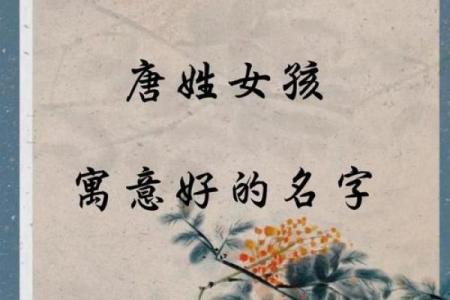 唐姓女孩
寓意好的名字